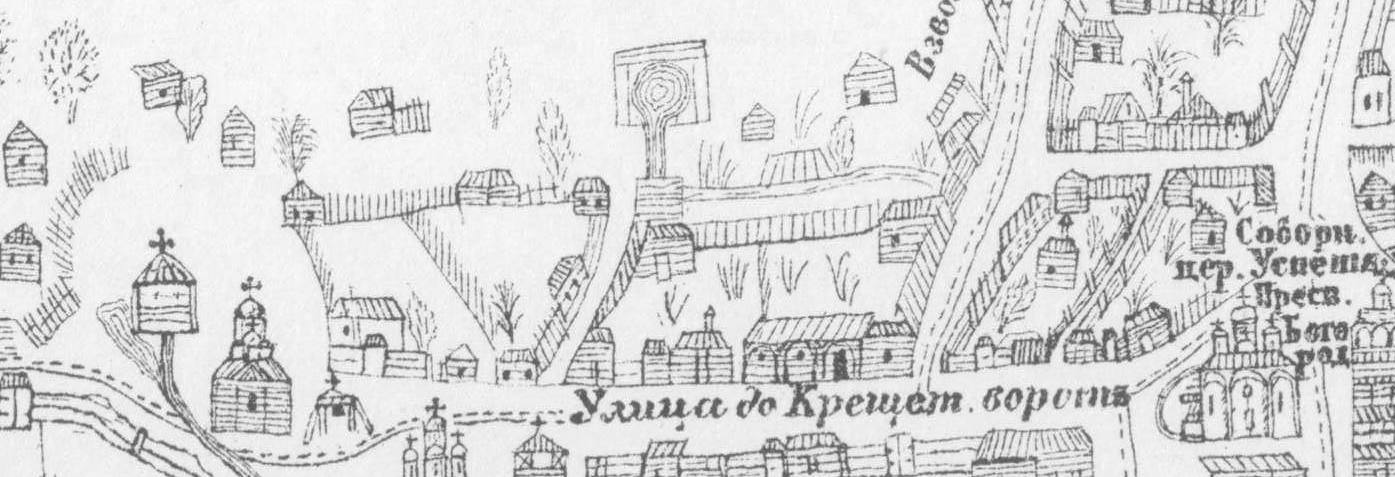 Взво
Соборн.
цер. Успени
Пресв.
Бого
род.
Улица до Крещат. воротъ